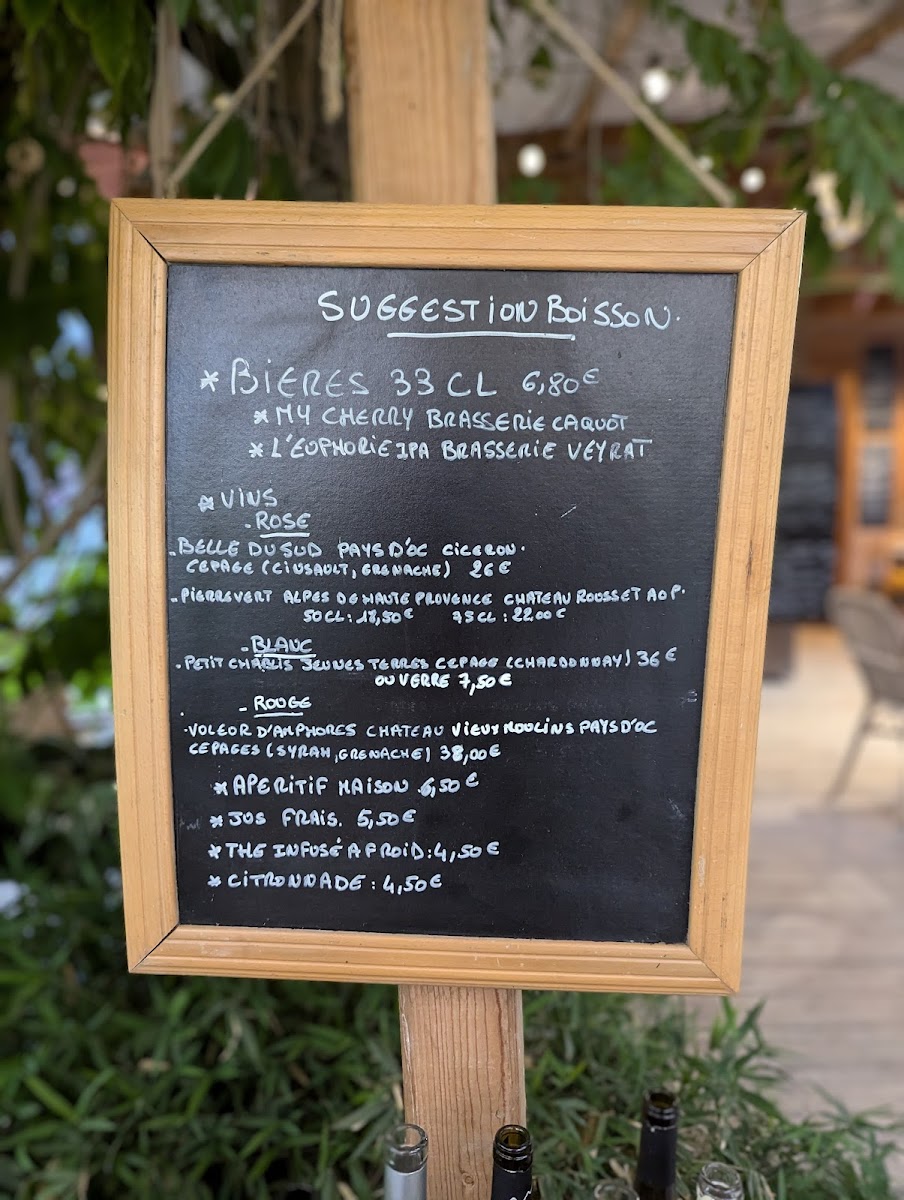 SUGGESTION BOISSON.
* BIERES 33 CL 6,80€
* MY CHERRY BRASSERIE CAQUOT
* L'EUPHORIE IPA BRASSERIE VEYRAT
* VINS
- ROSE
- BELLE DU SUD PAYS D'OC CICERON.
CEPAGE (CINSAULT, GRENACHE) 26€
- PIERREVERT ALPES DE HAUTE PROVENCE CHATEAU ROUSSET AOP.
50CL: 18,50€ 75CL: 22.00€
- BLANC
- PETIT CHABLIS JEUNES TERRES CEPAGE (CHARDONNAY) 36€
OU VERRE 7,50€
- ROUGE
- VOLEUR D'AMPHORES CHATEAU VIEUX MOULINS PAYS D'OC
CEPAGES (SYRAH, GRENACHE) 38,00€
* APERITIF MAISON 6,50€
* JUS FRAIS. 5,50€
* THE INFUSÉ A FROID: 4,50€
* CITRONNADE: 4,50€